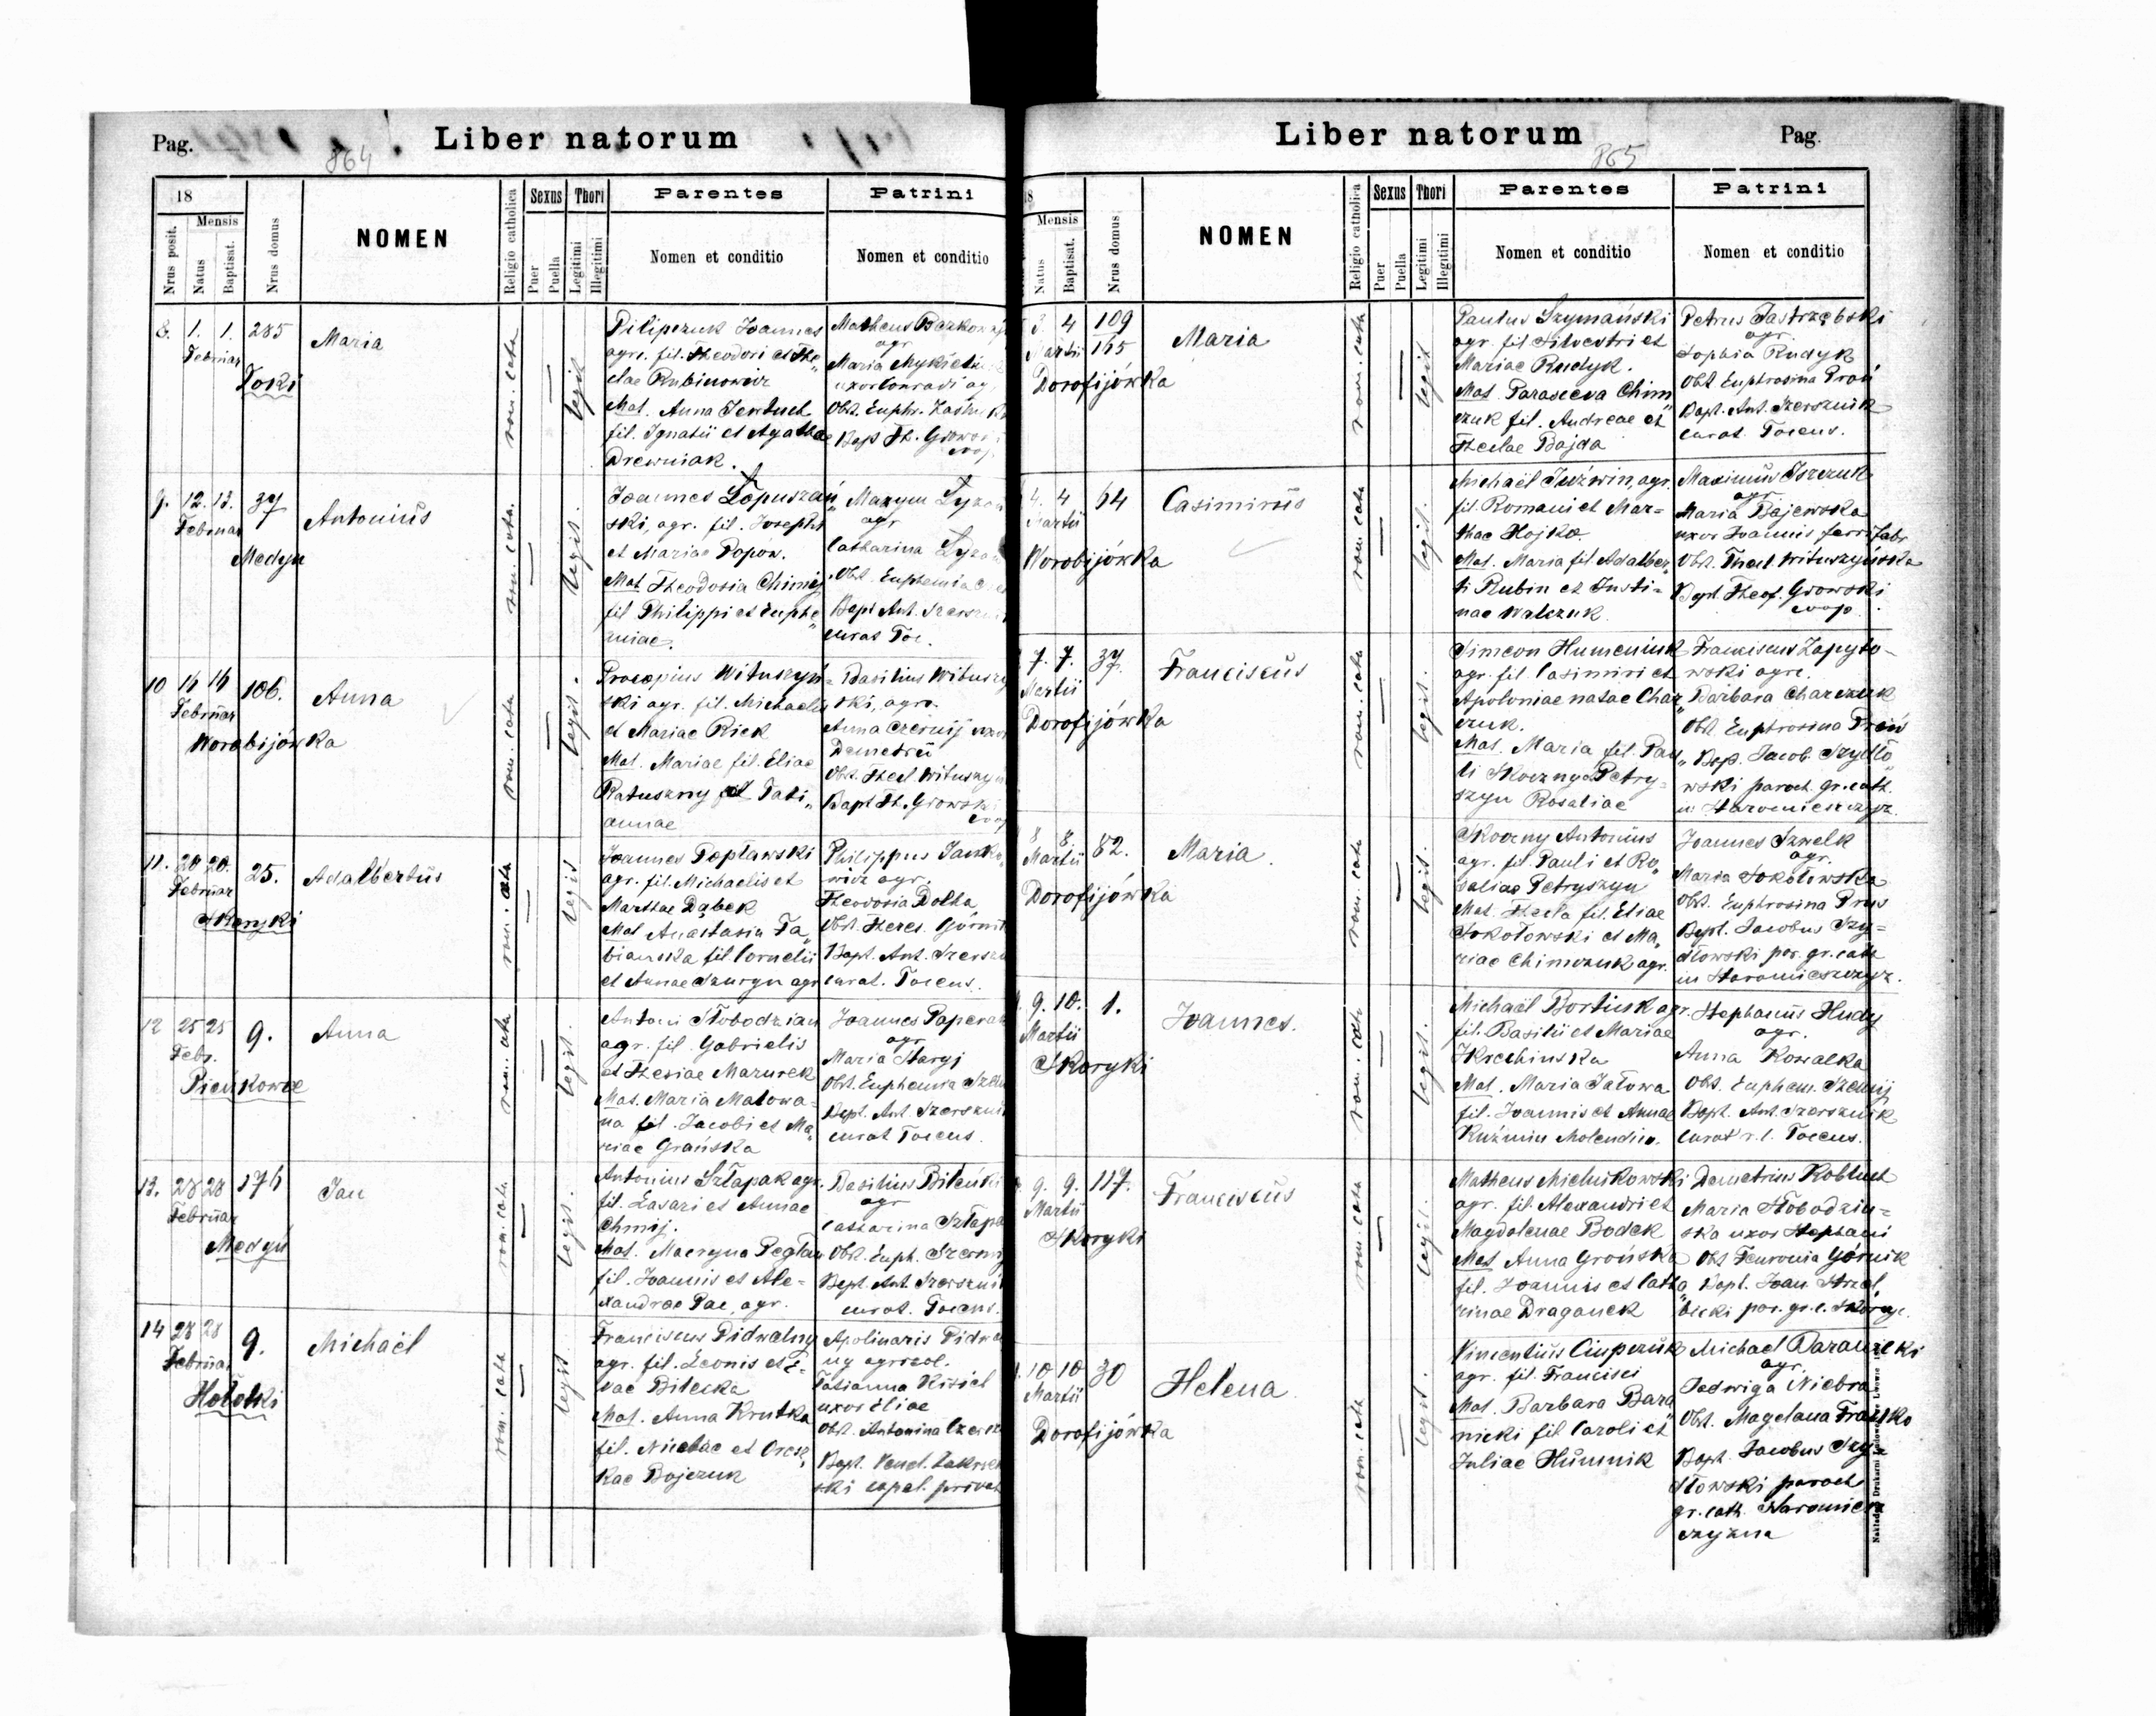 Pag.
864
Liber natorum
18
Mensis
Nrus posit.
Natus
Baptisat.
Nrus domus
NOMEN
Religio catholica
Sexus
Puer
Puella
Thori
Legitimi
Illegitimi
Parentes
Nomen et conditio
Patrini
Nomen et conditio
8. 1. 1. 285
Februar
Toki
Maria
rom. cath.
legit
Pilipczuk Joannes
agr. fil. Theodori et The„
clae Rubinowicz
Mat. Anna Jenduch
fil. Ignatii et Agathae
Drewniak.
Matheus
agr
Maria
uxor Conradi ag.
Obst. Euphr.
Bap Th.
9. 12. 13. 37
Februar
Medyn
Antonius
rom. cath.
legit.
Joannes Łopuszań„
ski, agr. fil. Josephi
et Mariae Popów.
Mat Theodosia Chimij
fil Philippi et Euphe„
miae.
Maxym
agr
Catharina
Obst. Euphemia
Bapt Ant.
curat Toc.
10 14 14 106.
Februar
Worobijówka
Anna
rom. cath
legit.
Procopius Wituszyń=
ski agr. fil. Michaelis
et Mariae Rick
Mat. Mariae fil. Eliae
Ratuszny et Tati„
annae
Basilius
ski, agr.
Anna Czernij uxor
Demetrii
Obst. Thecl
Bapt Th. Growski
coop
11. 20 20. 25.
Februar
Skoryki
Adalbertus
rom. cath
legit
Joannes Popławski
agr. fil. Michaelis et
Marthae Dąbek
Mat Anastasia Fa„
biańska fil Cornelii
et Annae Szurgn agr
Philippus
wicz agr.
Theodosia Dolha
Obst. Theres.
Bapt. Ant.
curat. Tocens.
12 25 25 9.
Febr.
Pieńkowce
Anna
rom. cath
legit.
Antoni Słobodzian
agr. fil Gabrielis
et Thesiae Mazurek
Mat. Maria Malowa=
na fil. Jacobi et Ma„
riae Grańska
Joannes
agr
Maria Staryj
Obst. Euphemia
Bapt. Ant.
curat Tocens.
13. 28 28 174
Februar
Medyń
Jan
rom. cath
legit.
Antonius Sztapak agr.
fil. Lazari et Annae
Chmij.
Mat. Macryna
fil. Joannis et Ale=
xandrae Pac, agr.
Basilius
agr
Catharina
Obst. Euph.
Bapt. Ant.
curat. Tocens.
14 28 28 9.
Februar
Hołotki
Michaël
rom. cath
legit
Franciscus Pidwalny
agr. fil. Leonis et E=
vae Bilecka
Mat. Anna Krutka
fil. Nicolae et
kae Bojczuk
Apolinaris
ny agricol.
Tatianna Kisiel
uxor Eliae
Obst. Antonina
Bapt. Vencl.
ski capel. privat
Liber natorum
865
Pag.
18
Mensis
Natus
Baptisat.
Nrus domus
NOMEN
Religio catholica
Sexus
Puer
Puella
Thori
Legitimi
Illegitimi
Parentes
Nomen et conditio
Patrini
Nomen et conditio
3. 4 109
Martii 165
Dorofijówka
Maria
rom. cath
legit
Paulus Szymański
agr. fil Silvestri et
Mariae Rudyk.
Mat Parasceva Chim„
czuk fil. Andreae et
Theclae Bajda
Petrus Jastrzębski
agr.
Sophia Rudyk
Obst Euphrosina Pruś
Bapt. Ant. Szersznik
curat. Tocens.
4. 4 64
Martii
Worobijówka
Casimirus
rom. cath
legit.
Michaël Juźwin, agr.
fil. Romani et Mar=
thae Hojko.
Mat. Maria fil. Adalber„
ti Rubin et Justi=
nae Walczuk.
Maximus
agr.
Maria Bajewska
uxor Joannis ferri fabr
Obst. Thecl. Wituszyńska
Bapt. Theof. Growski
coop.
7. 7. 37.
Martii
Dorofijówka
Franciscus
rom. cath
legit.
Simeon Humeniuk
agr. fil. Casimiri et
Apoloniae natae Char„
czuk.
Mat. Maria fil. Pau„
li Skoczny et Petry=
szyn Rosaliae
Franciscus Zapyto-
wski agr.
Barbara Charczuk
Obst. Euphrosina Pruś
Bap. Jacob. Szydło„
wski paroch. gr. cath.
in Staromieszczyz.
8 8. 82.
Martii
Dorofijówka
Maria.
rom. cath
legit.
Skoczny Antonius
agr. fil. Pauli et Ro„
saliae Petryszyn
Mat. Thecla fil. Eliae
Sokołowski et Ma„
riae Chimczuk agr.
Joannes Szwelk
agr.
Maria Sokołowska
Obst. Euphrosina Prus
Bapt. Jacobus Szy=
dłowski par. gr. cath
in Staromieszczyz.
9. 10. 1.
Martii
Skoryki
Joannes.
rom. cath
legit.
Michaël Bortiuk agr.
fil. Basilii et Mariae
Mat. Maria Jałowa
fil. Joannis et Annae
Kuźmin Molendin.
Stephanus Hudy
agr.
Anna Kowalka
Obst. Euphem.
Bapt. Ant. Szersznik
curat r. l. Tocens.
9. 9. 117.
Martii
Skoryki
Franciscus
rom. cath
legit.
Matheus Mielnikowski
agr. fil. Alexandri et
Magdalenae Bodek
Mat Anna Grońska
fil. Joannis et Catha„
rinae Draganek
Demetrius Kobluch
Maria Słobodzin=
ska uxor Stephani
Obst Fewronia Górnik
Bapt. Joan. Strzel„
bicki par. gr. c. Skoryc.
10 10 30
Martii
Dorofijówka
Helena.
rom. cath
legit.
Vincentius Ciupczuk
agr. fil. Francisci
Mat. Barbara Bara„
niecki fil Caroli et
Juliae Humnik
Michael Baraniecki
agr.
Jadwiga Niebra
Obst. Magdalena Franko
Bapt. Jacobus Szy=
dłowski paroch
gr. cath. Staromiesz
czyzna